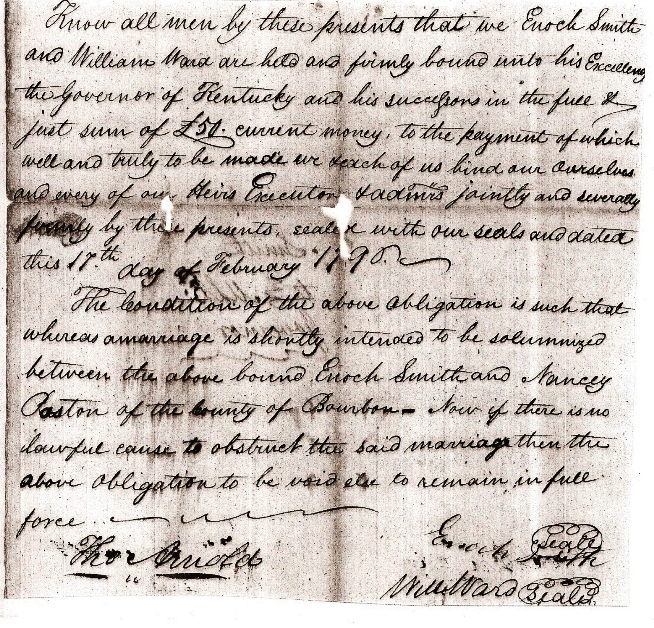 Know all men by these presents that we Enoch Smith
and William Ward are held and firmly bound unto his Excellency
the Governor of Kentucky and his successors in the full &
just sum of £50. current money, to the payment of which
well and truly to be made we & each of us bind our ourselves
and every of our Heirs Executors & admrs jointly and severally
firmly by these presents, sealed with our seals and dated
this 17.th day of February 179
The Condition of the above Obligation is such that
whereas a marriage is shortly intended to be solumnized
between the above bound Enoch Smith and Nancey
of the County of Bourbon - Now if there is no
lawful cause to obstruct the said marriage then the
above Obligation to be void else to remain in full
force
Thos Arnold
Enoch Smith Seal
Will Ward Seal